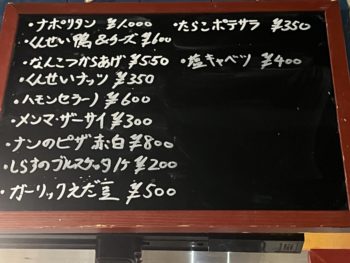 ・ナポリタン ¥1,000
・くんせい鴨&チーズ ¥600
・なんこつからあげ ¥550
・くんせいナッツ ¥350
・ハモンセラーノ ¥600
・メンマ・ザーサイ ¥300
・ナンのピザ 赤・白 ¥800
・しらすのブルスケッタ1ケ ¥200
・ガーリックえだ豆 ¥500
・たらこポテサラ ¥350
・塩キャベツ ¥400